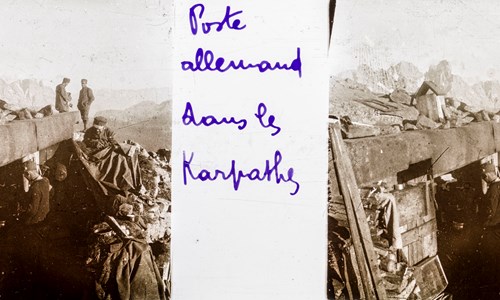 Poste
allemand
dans les
Karpathes